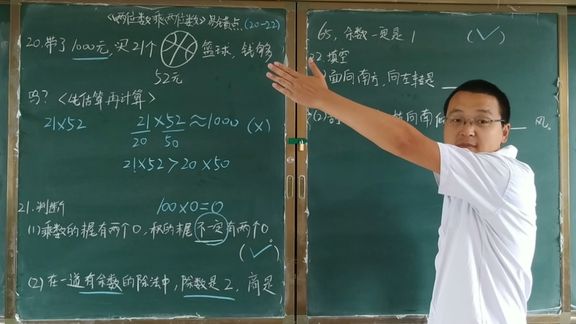 《两位数乘两位数》易错点 (20-22)
20.带了1000元,买21个 篮球,钱够
52元
吗?《先估算再计算》
21×52 21×52≈1000 (×)
20 50
21×52>20×50
21.判断 100×0=0
(1)乘数的尾有两个0,积的尾不一定有两个0
(✓)
(2)在一道有余数的除法中,除数是2,商是
65,余数一定是1 (✓)
22填空
(1)面向南方,向左转是
(2)
向南
风。